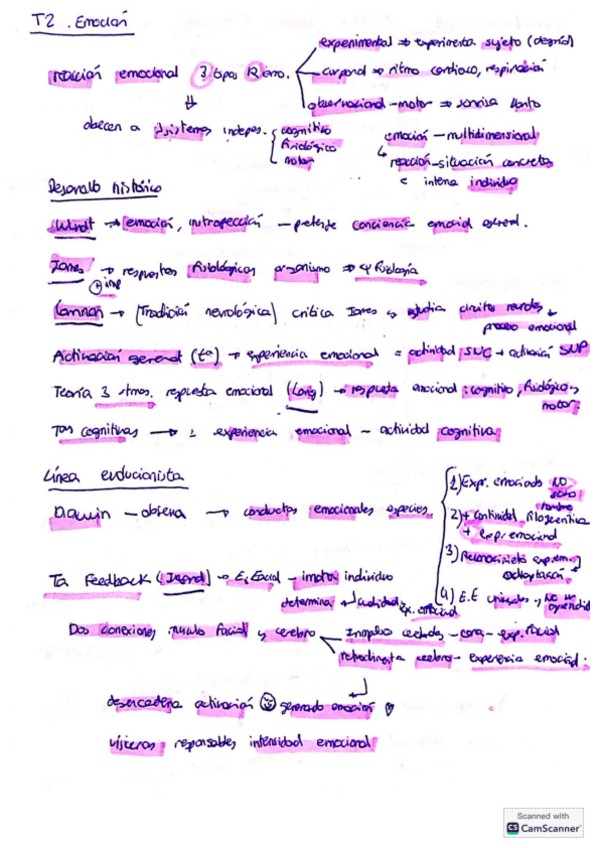 T2. Emoción
experimental → experimenta sujeto
reacción emocional 3 tipos R emo. corporal → ritmo cardiaco, respiración
observacional - motor → sonrisa llanto
obecen a 3 sistemas indepes. cognitivo
fisiológico
motor
emoción - multidimensional
reacción - situación concreta
e interna individuo
Desarrollo histórico
Wundt → emoción, introspección - pretende conciencia emocional general.
James → respuestas fisiológicas organismo → ψ fisiología
+ imp
Cannon → [Tradición neurológica] crítica James → estudia circuito
proceso emocional
Activación general (tª) → experiencia emocional = actividad SNC + activación SNP
Teoría 3 stmos. respuesta emocional (Lang) → respuesta emocional: cognitivo, fisiológico,
motor.
Tas cognitivas → experiencia emocional ~ actividad cognitiva
Línea evolucionista
Darwin - observa → conductas emocionales especies
1) Expr. emociones no
solo
hombre
2) + continuidad filogenética
+ expr emocional
3) Reconocimiento expr em.
adaptación
4) E.E universales, no
aprendidas
Ta Feedback (Izard) → E. Facial - individuo
determina actividad ex. emocional
Dos conexiones, músculo facial y cerebro
cara - exp. facial
cerebro - experiencia emocional.
desencadena activación generando emoción
vísceras responsables intensidad emocional
Scanned with
CS CamScanner